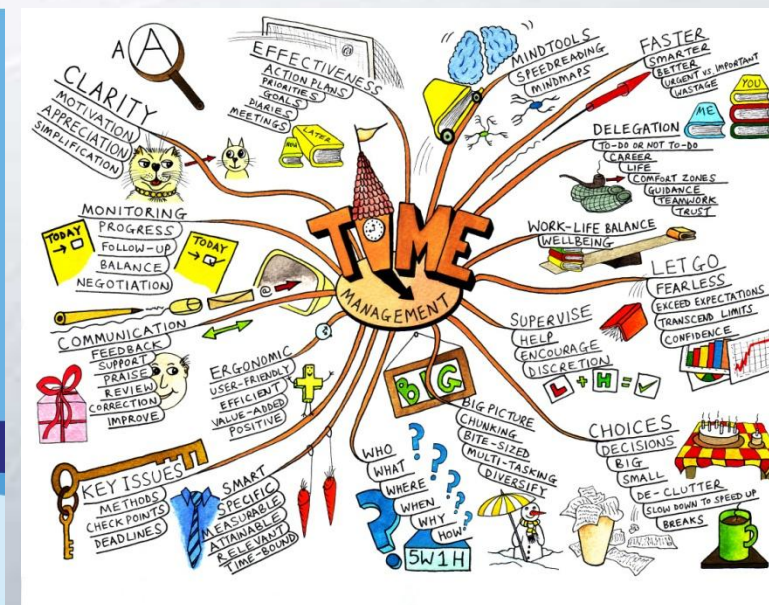 TIME
MANAGEMENT
A A
CLARITY
MOTIVATION
APPRECIATION
SIMPLIFICATION
EFFECTIVENESS
ACTION PLANS
PRIORITIES
GOALS
DIARIES
MEETINGS
NOW
LATER
MINDTOOLS
SPEEDREADING
MINDMAPS
FASTER
SMARTER
BETTER
URGENT VS. IMPORTANT
WASTAGE
ME
YOU
DELEGATION
TO-DO OR NOT TO-DO
CAREER
LIFE
COMFORT ZONES
GUIDANCE
TEAMWORK
TRUST
WORK-LIFE BALANCE
WELLBEING
LET GO
FEARLESS
EXCEED EXPECTATIONS
TRANSCEND LIMITS
CONFIDENCE
SUPERVISE
HELP
ENCOURAGE
DISCRETION
L + H =
CHOICES
DECISIONS
BIG
SMALL
DE-CLUTTER
SLOW DOWN TO SPEED UP
BREAKS
BIG
BIG PICTURE
CHUNKING
BITE-SIZED
MULTI-TASKING
DIVERSIFY
WHO
WHAT
WHERE
WHEN
WHY
HOW
? ? ? ? ? ?
5W1H
SMART
SPECIFIC
MEASURABLE
ATTAINABLE
RELEVANT
TIME-BOUND
KEY ISSUES
METHODS
CHECK POINTS
DEADLINES
ERGONOMIC
USER-FRIENDLY
EFFICIENT
VALUE-ADDED
POSITIVE
COMMUNICATION
FEEDBACK
SUPPORT
PRAISE
REVIEW
CORRECTION
IMPROVE
@
MONITORING
PROGRESS
FOLLOW-UP
BALANCE
NEGOTIATION
TODAY
TODAY